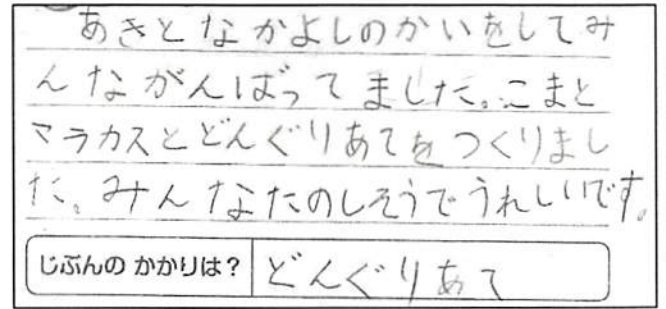 あきとなかよしのかいをしてみ
んながんばってました。こまと
マラカスとどんぐりあてをつくりまし
た。みんなたのしそうでうれしいです。
じぶんの かかりは？ どんぐりあて